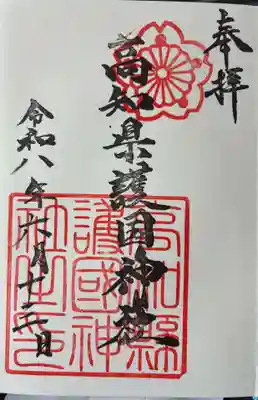 奉拝
高知県護国神社
高知縣
護國神
社之印
令和八年六月十三日